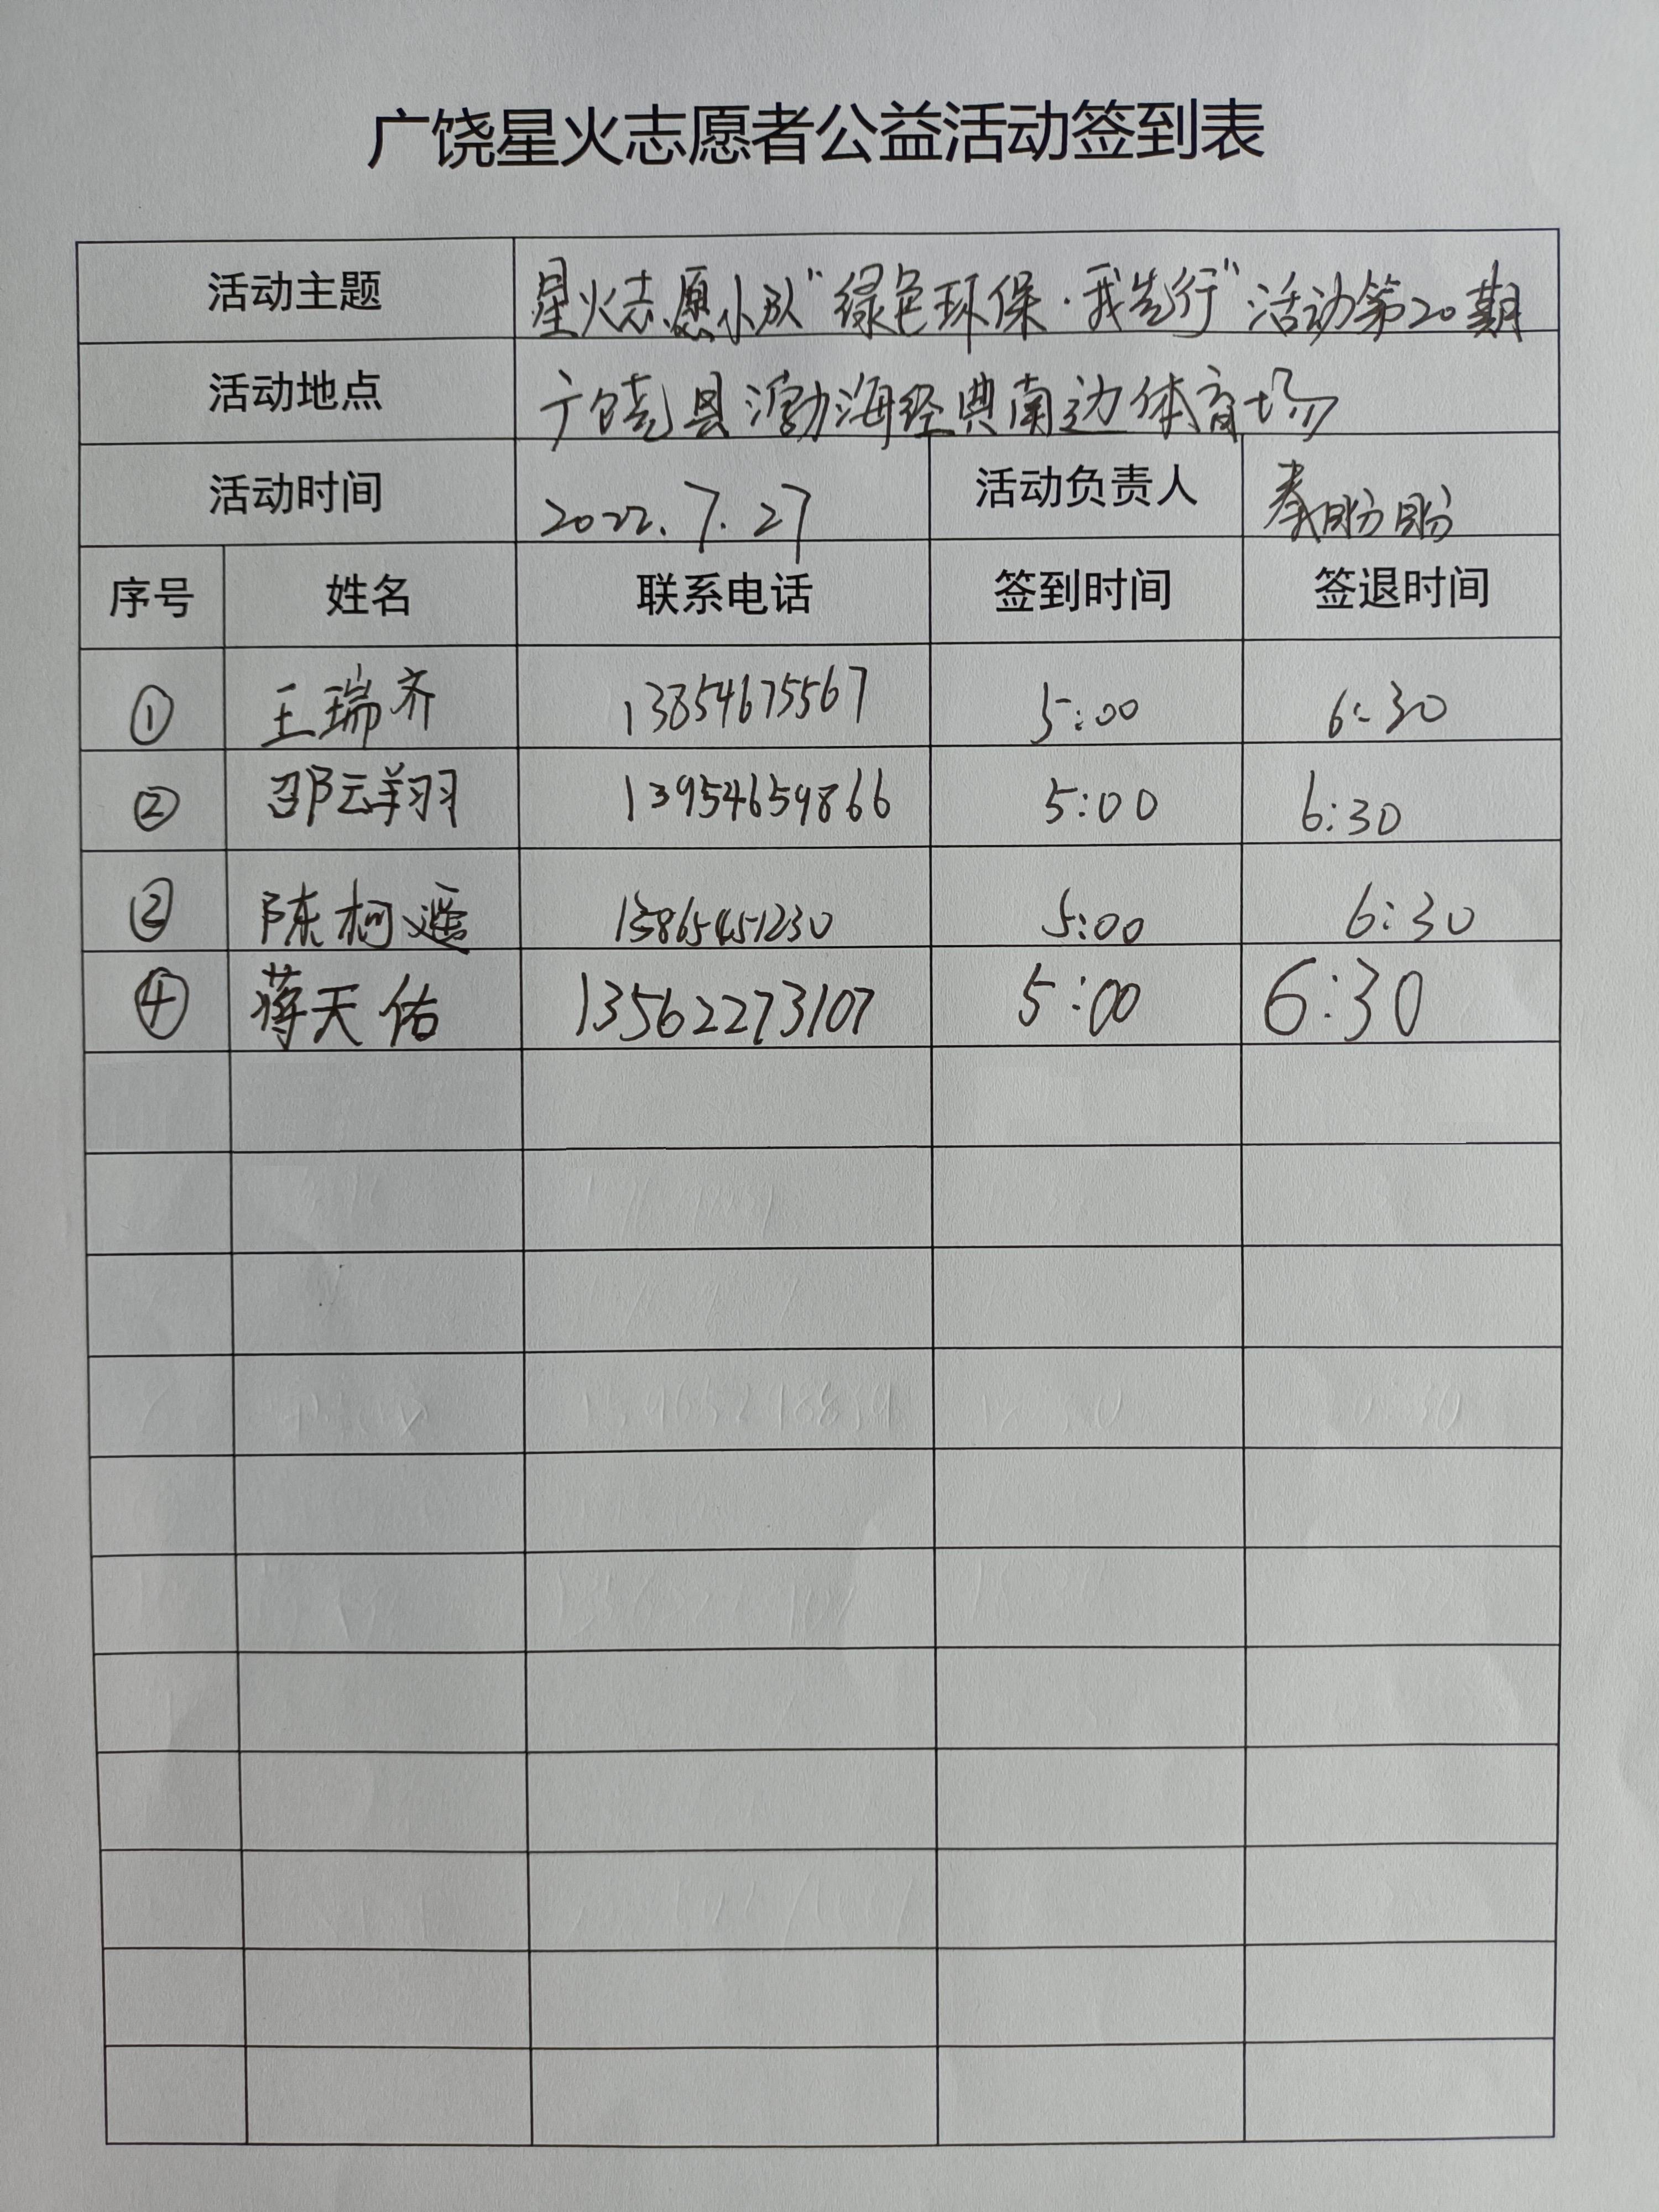 广饶星火志愿者公益活动签到表
活动主题 星火志愿小队"绿色环保·我先行"活动第20期
活动地点 广饶县渤海经典南边体育场
活动时间 2022.7.27 活动负责人 秦盼盼
序号 姓名 联系电话 签到时间 签退时间
① 王瑞齐 13854675567 5:00 6:30
② 邵云翔 13954659866 5:00 6:30
③ 陈柯遥 13865451230 5:00 6:30
④ 蒋天佑 13562273107 5:00 6:30